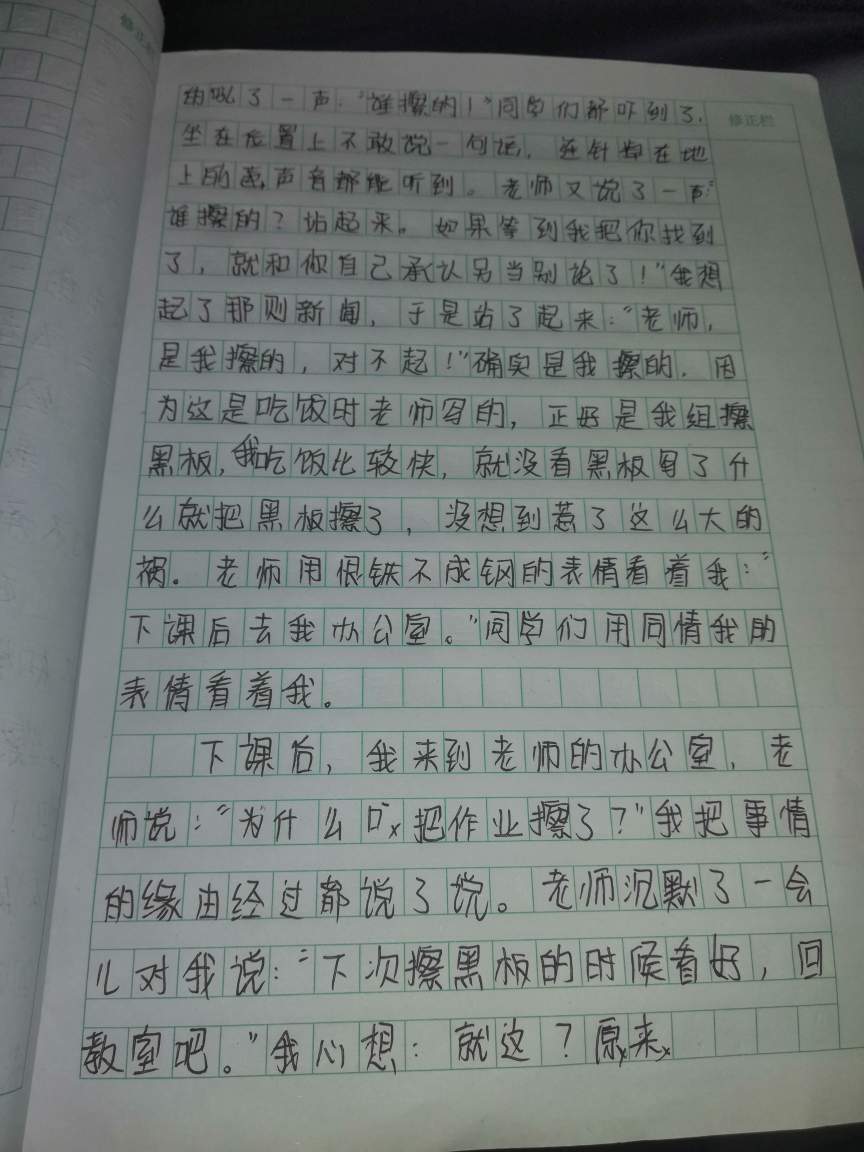 修正栏
的吼了一声："谁擦的！"同学们都吓到了，
修正栏
坐在位置上不敢说一句话，连针掉在地
上的声音都能听到。老师又说了一声："
谁擦的？站起来。如果等到我把你找到
了，就和你自己承认另当别论了！"我想
起了那则新闻，于是站了起来："老师，
是我擦的，对不起！"确实是我擦的，因
为这是吃饭时老师写的，正好是我组擦
黑板，我吃饭比较快，就没看黑板写了什
么就把黑板擦了，没想到惹了这么大的
祸。老师用恨铁不成钢的表情看着我："
下课后去我办公室。"同学们用同情我的
表情看着我。
下课后，我来到老师的办公室，老
师说："为什么把作业擦了？"我把事情
的缘由经过都说了说。老师沉默了一会
儿对我说："下次擦黑板的时候看好，回
教室吧。"我心想：就这？原来